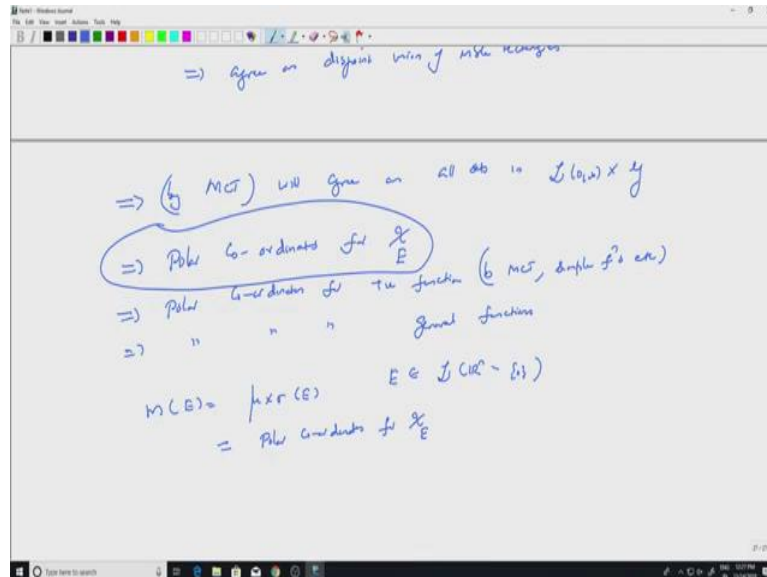 Note1 - Windows Journal
File Edit View Insert Actions Tools Help
=> agree on disjoint union of msble rectangles
=> (by MCT) will agree on all sets in L(0,∞) × y
=> Polar Co-ordinates for χ_E
=> Polar Co-ordinates for +ve function (by MCT, simple fns etc)
=> " " " general functions
m(E) = μ×σ(E) E ∈ L(ℝⁿ - {0})
= Polar Co-ordinates for χ_E
Type here to search